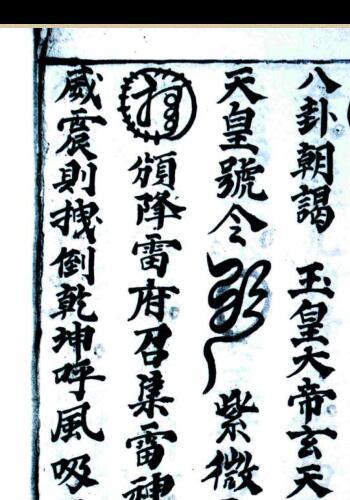 八卦朝謁　玉皇大帝玄天
天皇號令　紫微
頒降雷府召集雷神
威震則拽倒乾坤呼風吸